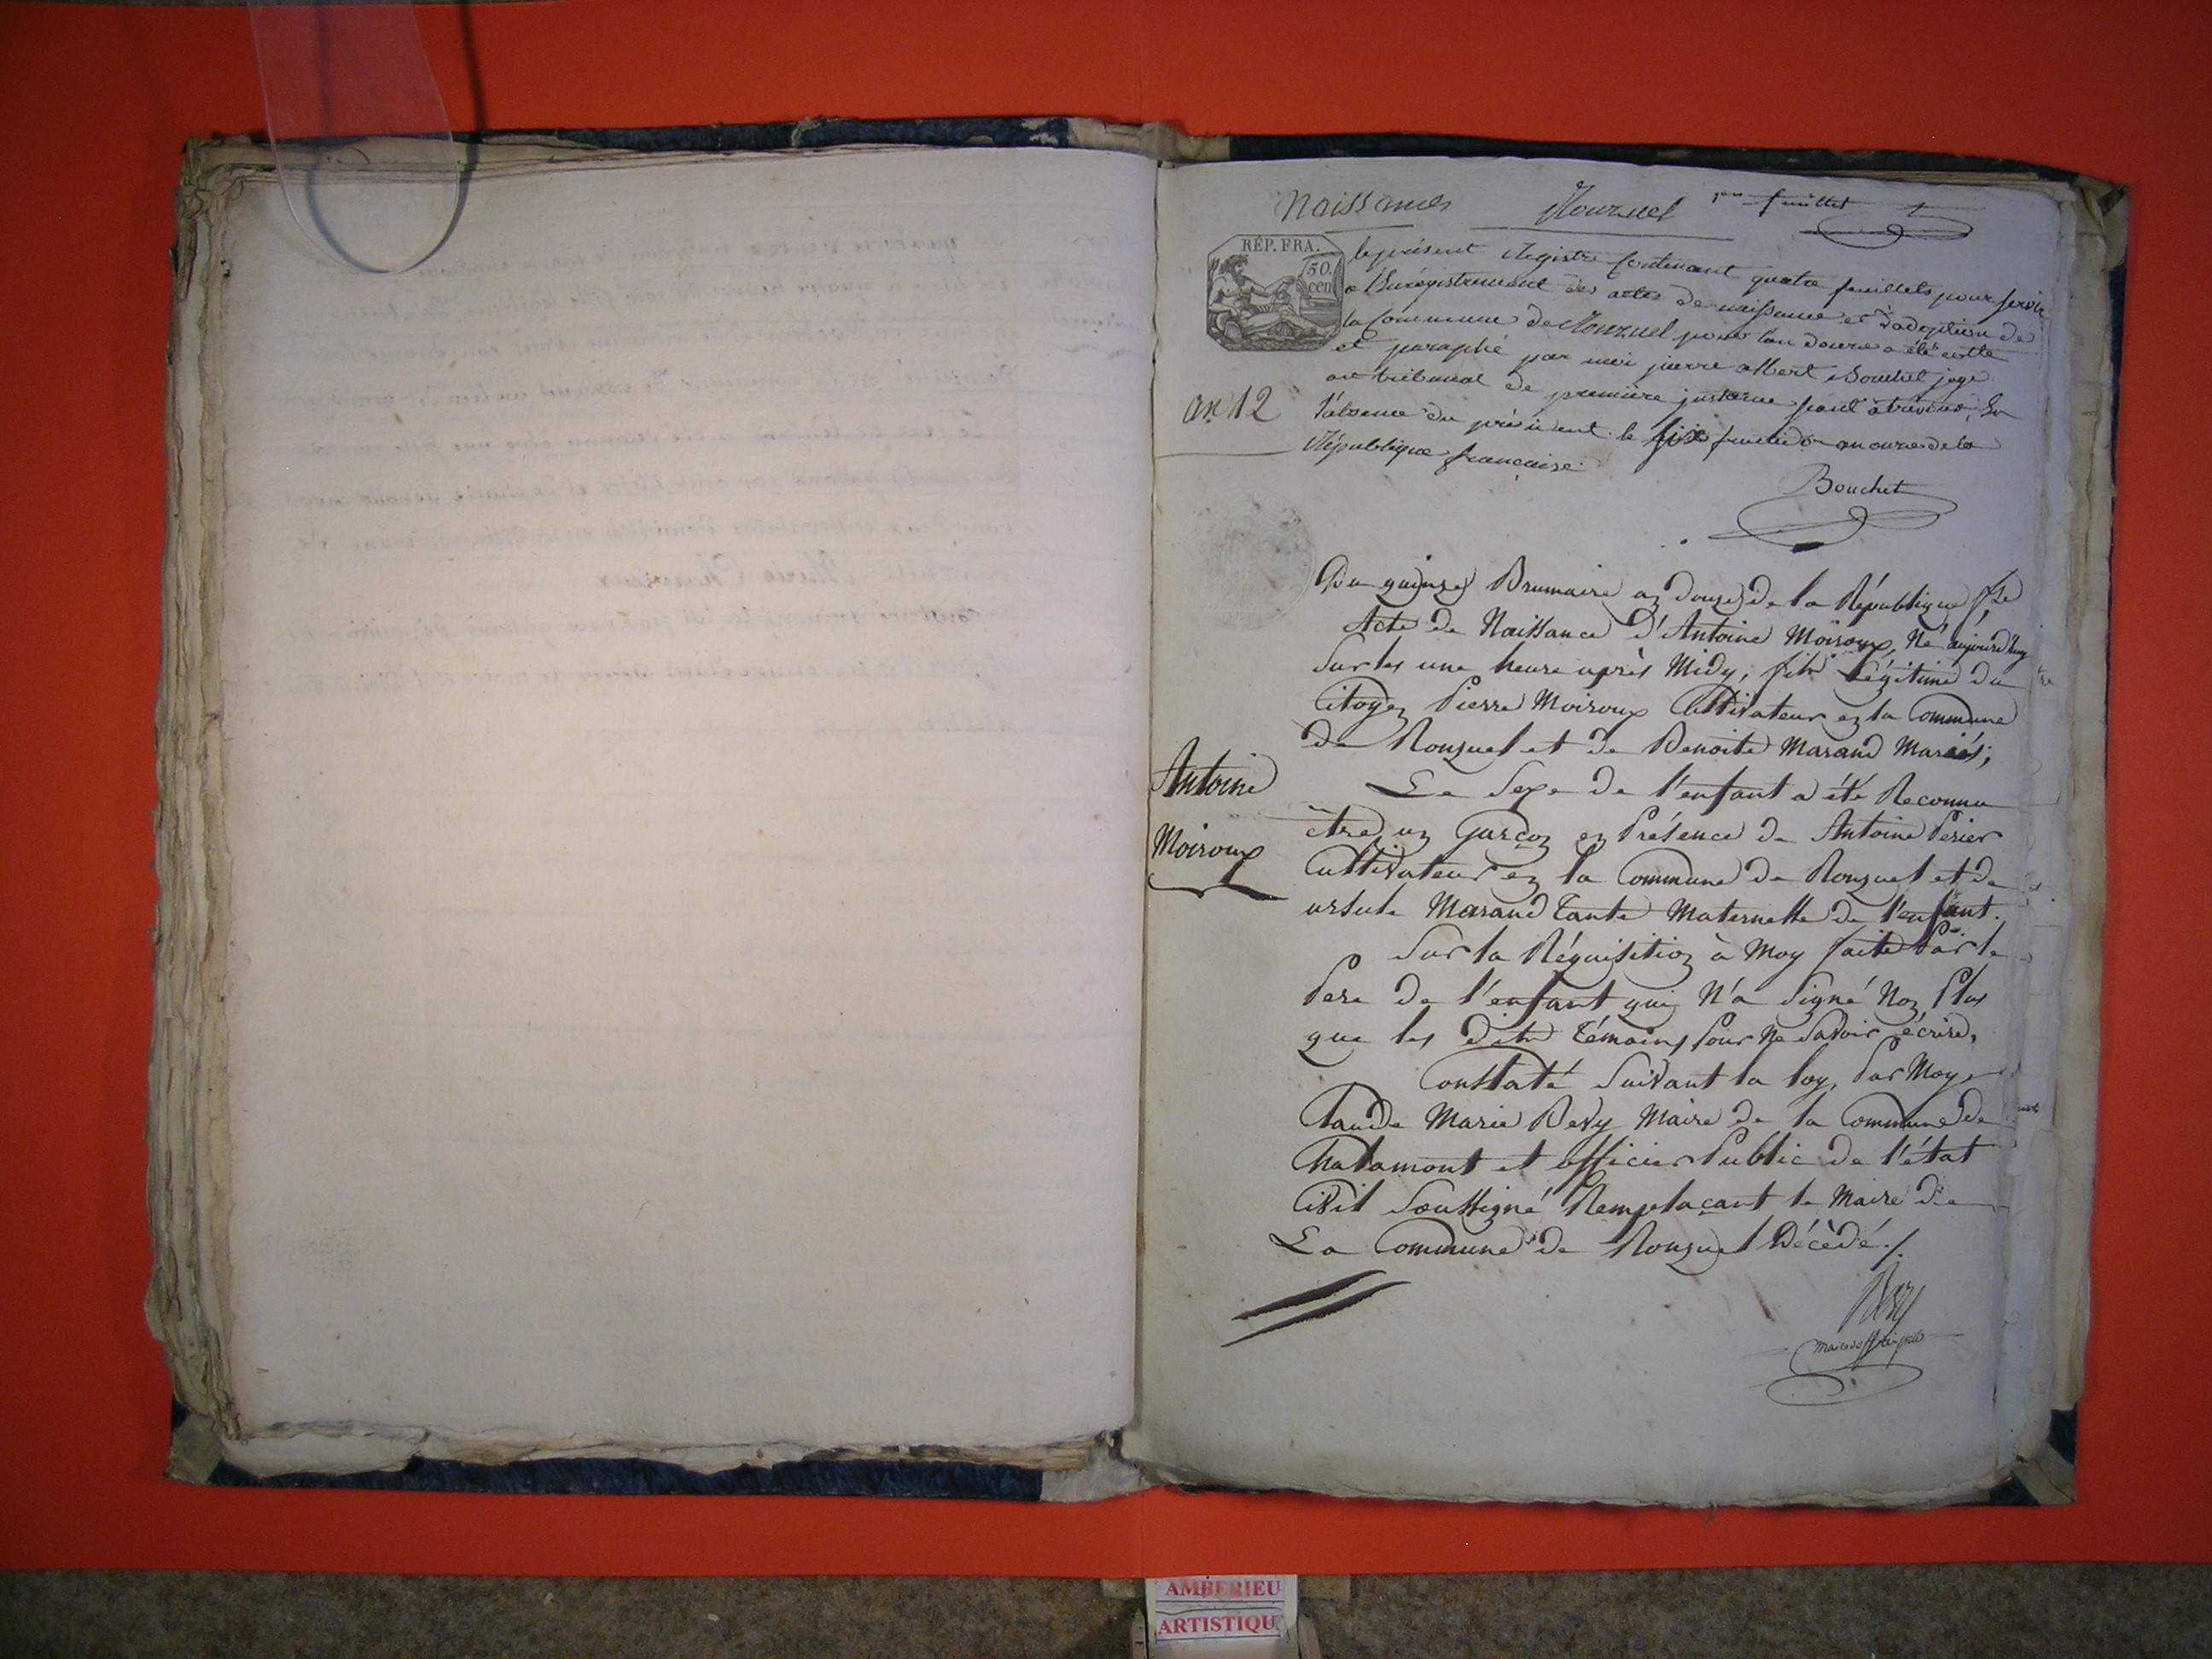 Naissances Ronzuel 1er feuillet
RÉP. FRA.
50.
cen
le présent Registre contenant quatre feuillets pour servir
a l'Enregistrement des actes de naissance et d'adoption de
la Commune de Ronzuel pour l'an douze a été cotté
et paraphé par moi pierre albert Bouchet juge
au tribunal de première instance séant à trévoux, en
l'absence du président le six fructidor an onze de la
République française
an 12
Bouchet
Du quinze Brumaire an douze de la République fse
Acte de Naissance d'Antoine Moiroux, Né aujourd'huy
Sur les une heure après Midy, fils Légitime du
Citoyen Pierre Moiroux Cultivateur en la Commune
de Ronzuel et de Benoite Marand Mariés;
Le Sexe de l'enfant a été Reconnu
être un Garçon en Présence de Antoine Perier
Cultivateur en la Commune de Ronzuel et de
ursule Marand tante Maternelle de l'enfant.
Antoine
Moiroux
Sur la Réquisition à Moy faite Par le
Pere de l'enfant qui N'a Signé Non Plus
que les dits témoins Pour Ne Savoir écrire,
Constaté Suivant la loy, Par Moy
Claude Marie Revy Maire de la Commune de
Chalamont et officier Public de l'état
Civil Soussigné Remplaçant le Maire de
La Commune de Ronzuel Décèdé ./.
Revy
AMBERIEU
ARTISTIQU